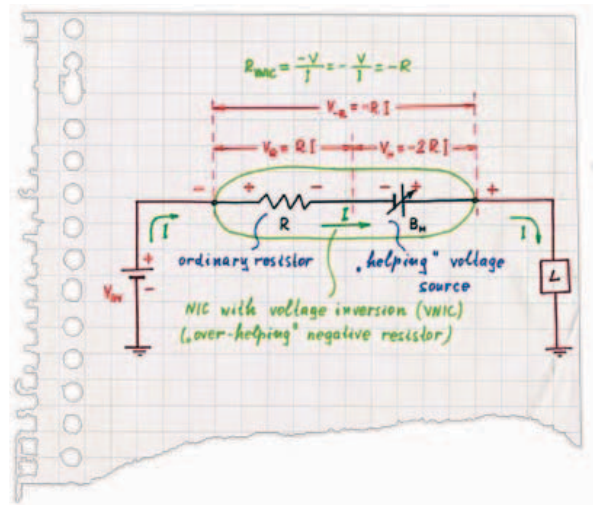 R_VNIC = -V/I = -V/I = -R
V_-R = -RI
V_R = RI V_H = -2RI
- + - - + +
I R I B_H I
ordinary resistor
„helping" voltage source
+
-
V_IN
L
NIC with voltage inversion (VNIC)
(„over-helping" negative resistor)